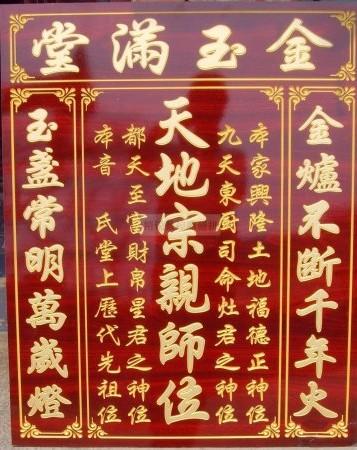 金玉滿堂
金爐不斷千年火
本家興隆土地福德正神位
九天東厨司命灶君之神位
天地宗親師位
都天至富財帛星君之神位
本音 氏堂上歷代先祖位
玉盏常明萬歲燈